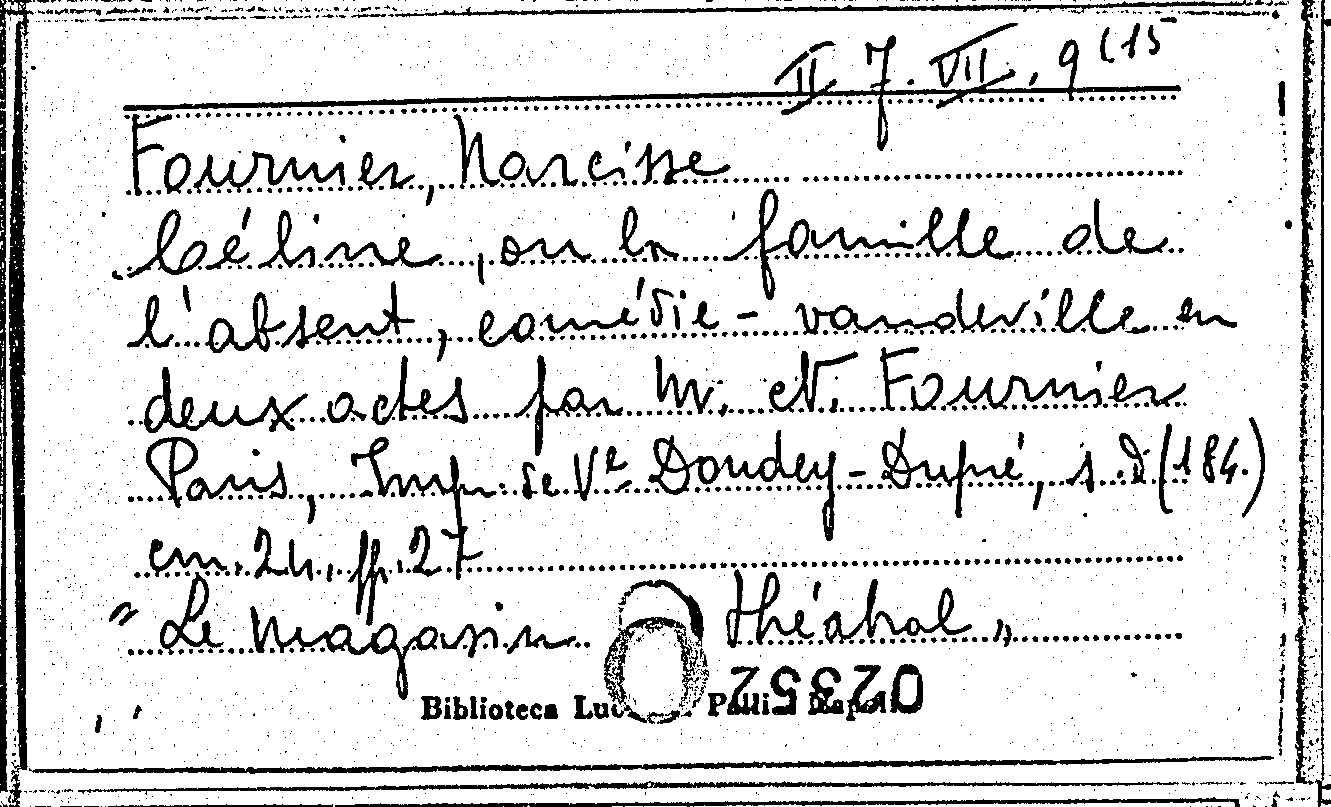 II 7. VII. 9 (15
Fournier, Narcisse
Céline, ou la famille de
l'absent, comédie - vaudeville en
deux actes par M. N. Fournier
Paris, Imp. de Vᵉ Dondey-Dupré, s.d (184.)
cm. 24, pp. 27
"Le magasin théâtral"
02352
Biblioteca